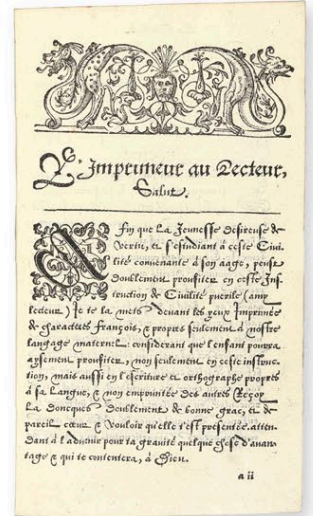 Le Imprimeur au Lecteur,
Salut.
Afin que la Jeunesse desireuse de
vertu, et s'estudiant à ceste Civi-
lité convenante à son aage, peust
doublement prouffiter en ceste Ins-
truction de Civilité puerile (amy
lecteur) Je te la mets devant les yeux Imprimée
de characteres François, & propres seulement à nostre
langage maternel: considerant que l'enfant pourra
aysement prouffiter, non seulement en ceste instruc-
tion, mais aussi en l'escriture et orthographe propres
à sa Langue, & non empruntée des autres Reçoy
la doncques doublement de bonne grace, et de
pareil cœur & vouloir qu'elle t'est presentée. atten-
dant à l'advenir pour ta gravité quelque chose d'avan-
tage & qui te contentera, à Dieu.
a ii